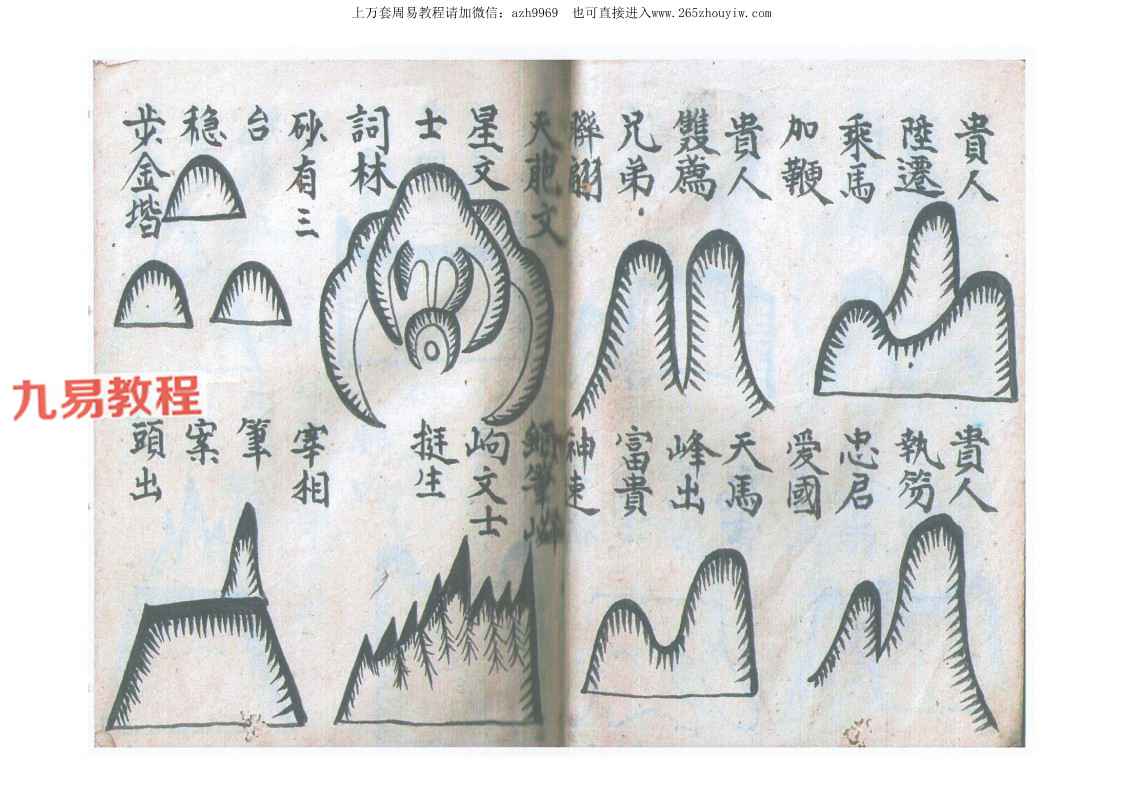 上万套周易教程请加微信：azh9969 也可直接进入www.265zhouyiw.com
貴人
陞遷
乘馬
加鞭
貴人
雙薦
兄弟
聯翩
貴人
執笏
忠君
愛國
天馬
峰出
富貴
神速
天 文
星文
士
詞林
砂有三
台
稳
步金堦
筆
岣文士
挺生
宰相
筆
案
頭出
九易教程